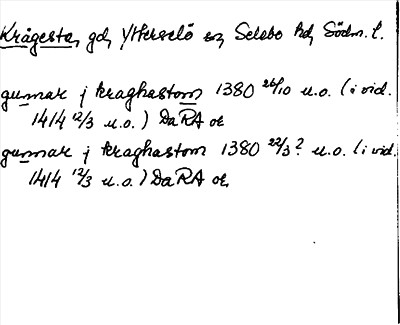 Krågesta, gd, Ytterselö sn, Selebo hd, Södm. l.
gunnar j kraghastom 1380 26/10 u.o. (i vid.
1414 12/3 u.o.) DaRA or
gunnar j kraghastom 1380 22/3? u.o. (i vid.
1414 12/3 u.o.) DaRA or.